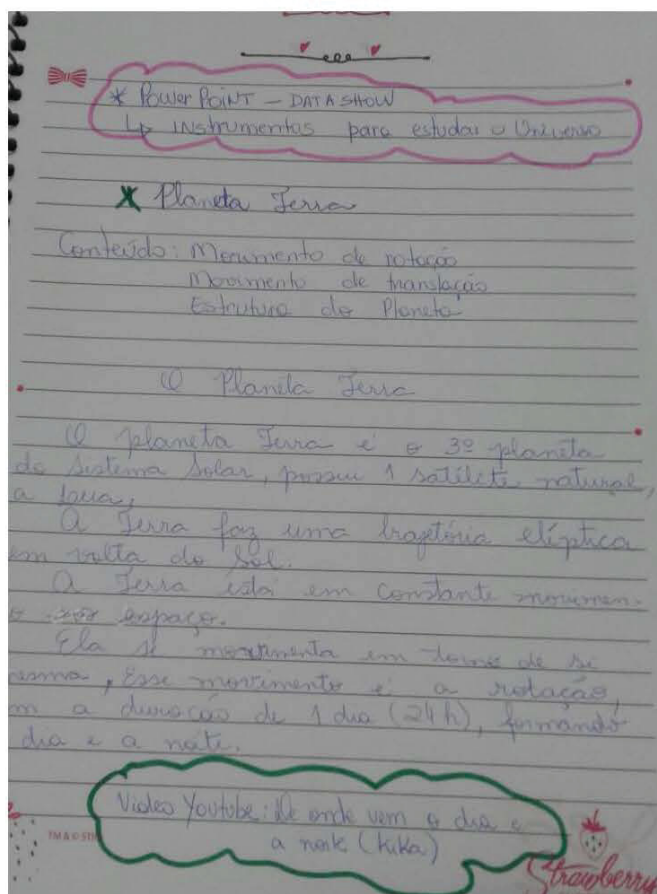 * Power Point - DATA SHOW
↳ instrumentos para estudar o Universo
* Planeta Terra
Conteúdo: Movimento de rotação
Movimento de translação
Estrutura do Planeta
O Planeta Terra
O planeta Terra é o 3º planeta
do Sistema Solar, possui 1 satélite natural,
a Lua,
A Terra faz uma trajetória elíptica
em volta do Sol.
A Terra está em constante movimen-
espaço.
Ela se movimenta em torno de si
esma, Esse movimento é a rotação,
m a duração de 1 dia (24 h), formando
dia e a noite.
Video Youtube: De onde vem o dia e
a noite (Kika)
TM & © ST
Strawberry